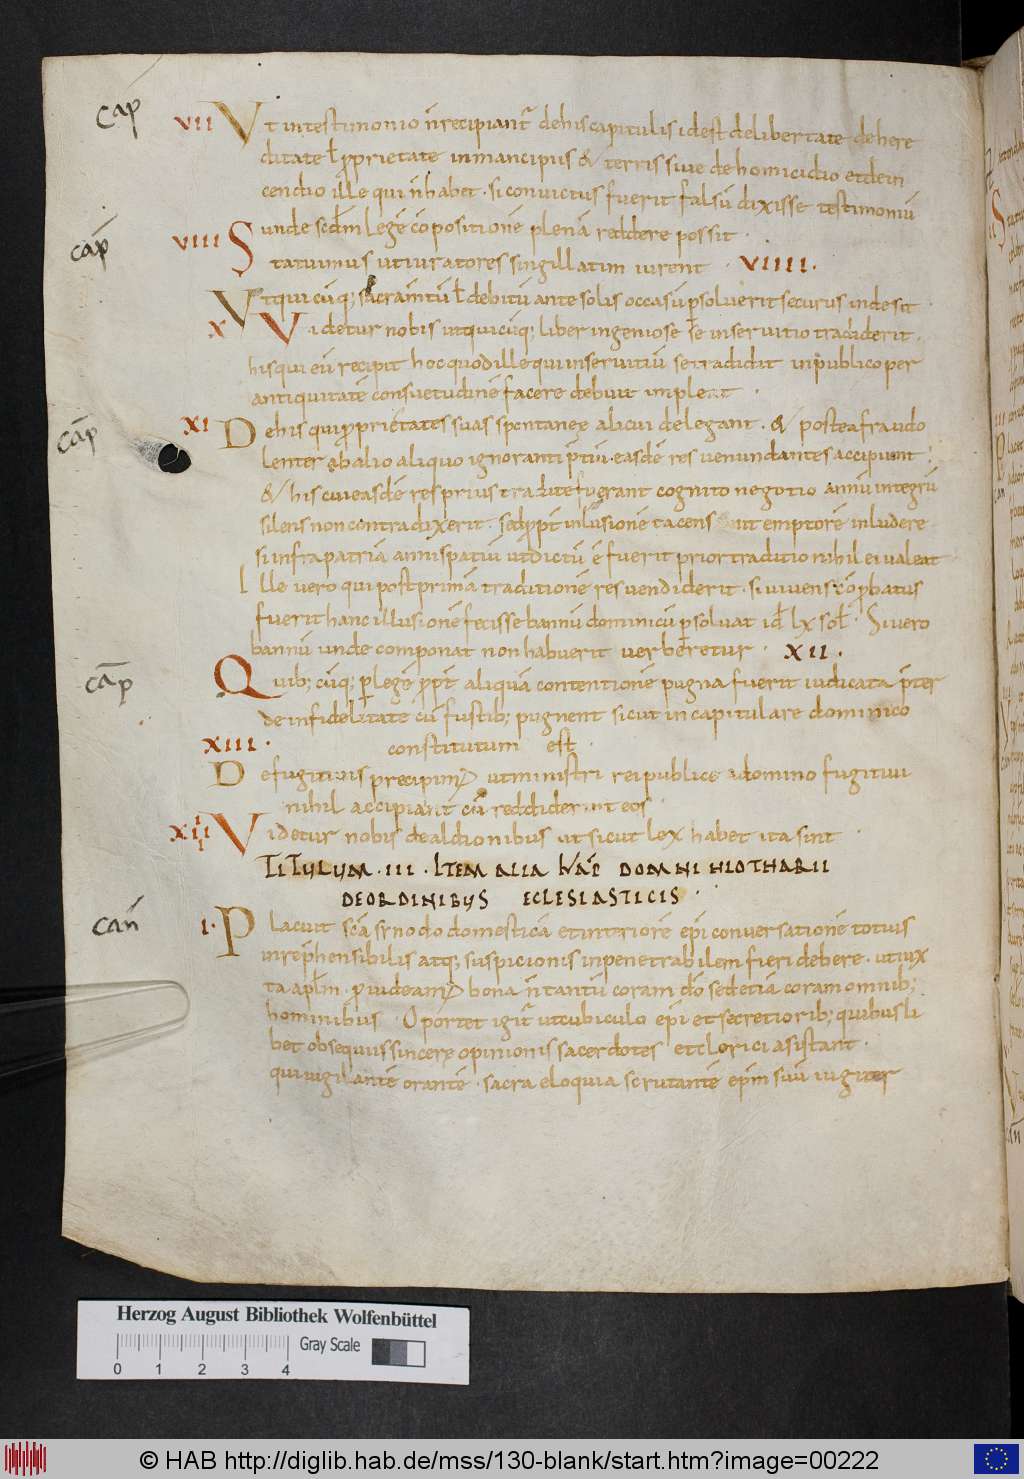 cap̄
VII Vt in testimonio n̄ recipiantᷣ de his capitulis id est de libertate de here
ditate ł p̄prietate in mancipiis & terris siue de homicidio et de in
cendio ille qui n̄ habet · si conuictus fuerit falsū dixisse testimoniū
unde scd̄m legē cōpositionē plenā reddere possit ·
cap̄
VIII Statuimus ut iuratores singillatim iurent · VIIII ·
Vt qui cūq; sacramtū ł debitū ante solis occasū psoluerit securus inde sit
X Videtur nobis ut qui cūq; liber ingeniose se in seruitio tradiderit ·
his qui eū recipit hoc quod ille qui in seruitiū se tradidit in publico per
antiquitatē consuetudinē facere debuit impleat ·
cap̄
XI De his qui p̄prietates suas spontanee alicui delegant · & postea fraudo
lenter ab alio aliquo ignoranti p̄tiū · easdē res uenundantes accipiunt
& his cui easdē res prius tradite fuerant cognito negotio annū integrū
silens non contradixerit · sed ppt inlusionē tacens ut emptorē inludere
si infra patriā anni spatiū ut dictū ē fuerit prior traditio nihil ei ualeat
Ille uero qui post primā traditionē res uendiderit · si uiuens cōp̄batus
fuerit hanc illusionē fecisse bannū dominicū psoluat id̄ lx sol̄ · Si uero
bannū unde componat non habuerit uerberetur · XII ·
cap̄
Quib; cūq; p legē ppt aliquā contentionē pugna fuerit iudicata p̄ter
de infidelitate cū fustib; pugnent sicut in capitulare dominico
XIII · constitutum est ·
De fugitiuis precipimᷣ ut ministri reipublice a domino fugitiui
nihil accipiant cū reddiderint eos
XIIII Videtur nobis de aldionibus ut sicut lex habet ita sint ·
TITULUM · III · ITEM ALIA KAP̄ DOMNI HLOTHARII
DE ORDINIBUS ECLESIASTICIS ·
can̄
I · Placuit scā synodo domesticā et interiorē epī conuersationē totius
inrep̄hensibilis atq; suspicionis inpenetrabilem fieri debere · ut iux
ta apłm · puideamᷣ bona n̄ tantū coram dō sed etiā coram omnib;
hominibus Oportet igitᷣ ut cubiculo epī et secretiorib; quibusli
bet obsequiis sincere opinionis sacerdotes et clerici asistant ·
qui uigilantē orantē · sacra eloquia scrutantē ep̄m suū iugiter
Herzog August Bibliothek Wolfenbüttel
Gray Scale
0 1 2 3 4
© HAB http://diglib.hab.de/mss/130-blank/start.htm?image=00222